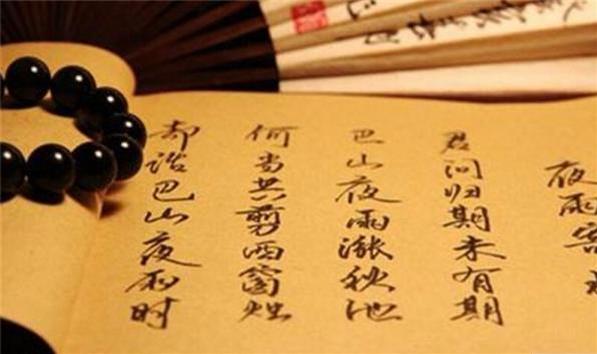 夜雨寄
君问归期未有期
巴山夜雨涨秋池
何当共剪西窗烛
却话巴山夜雨时